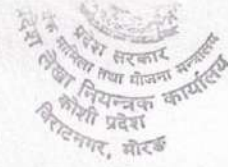 प्रदेश सरकार
मामिला तथा योजना मन्त्रालय
प्रदेश लेखा नियन्त्रक कार्यालय
कोशी प्रदेश
विराटनगर, मोरङ